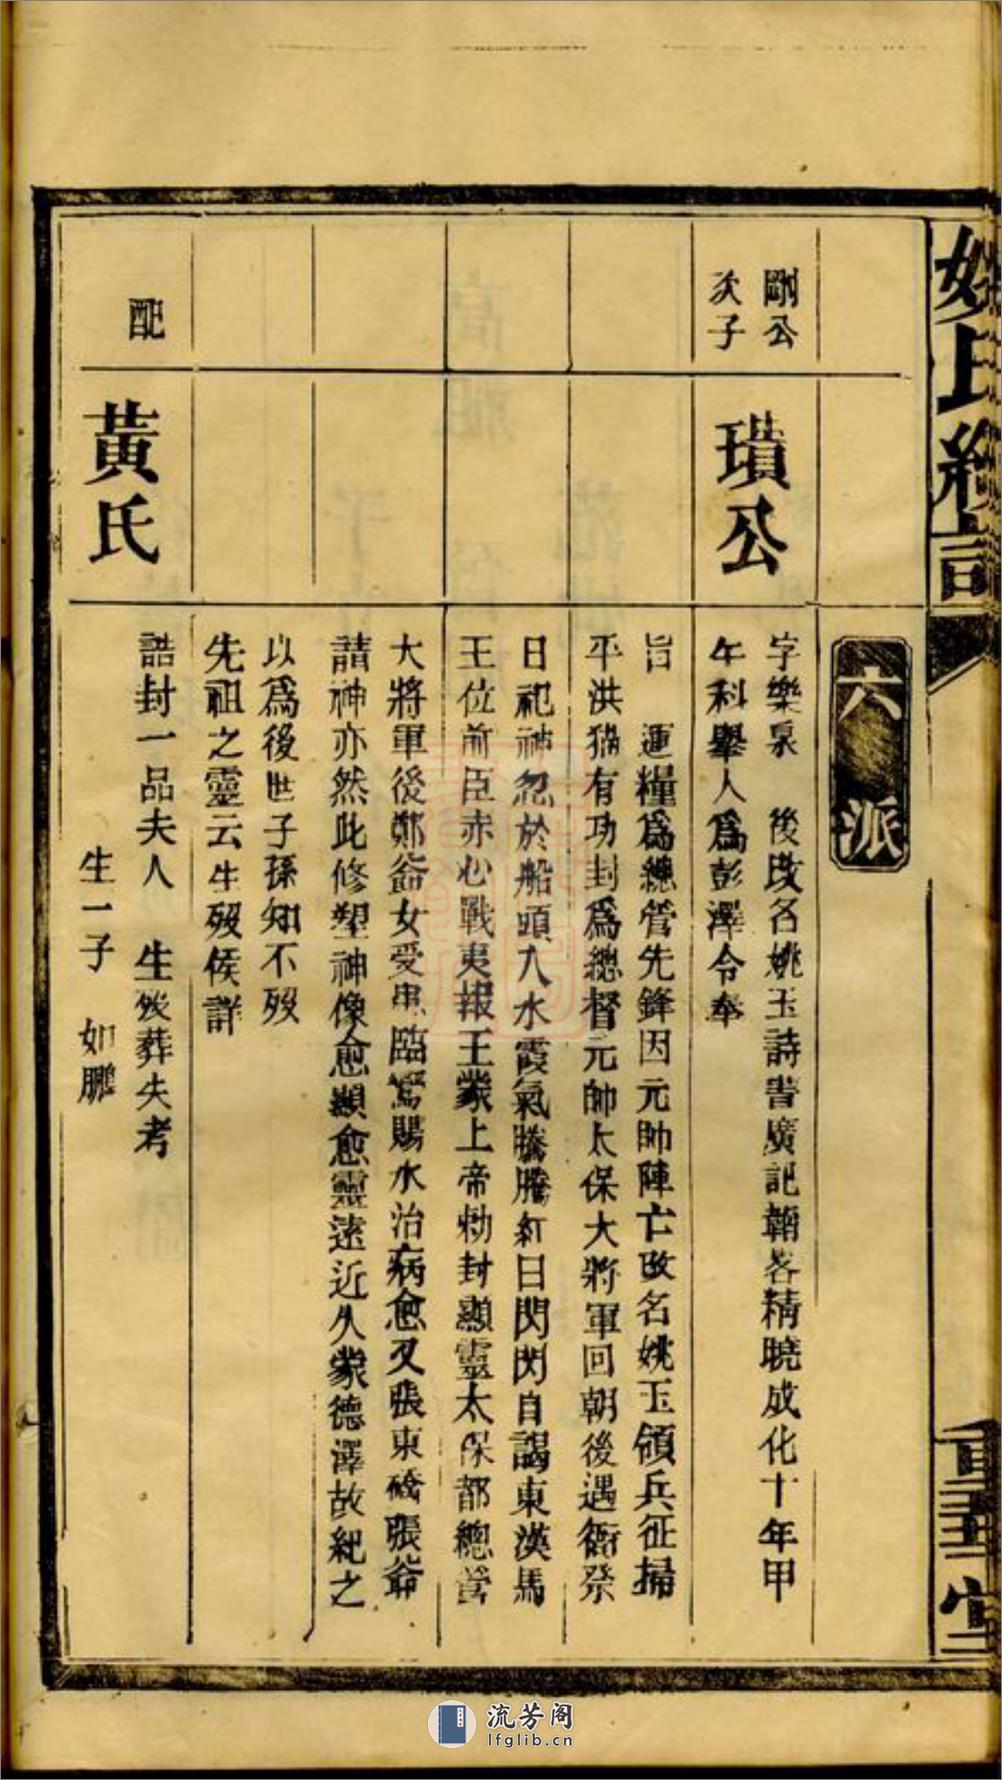 姚氏續譜
重華堂
六派
剛公
次子
璝公
字樂泉 後改名姚玉詩書廣記韜畧精曉成化十年甲
午科舉人爲彭澤令奉
旨 運糧爲總管先鋒因元帥陣亡改名姚玉領兵征掃
平洪猫有功封爲總督元帥太保大將軍回朝後遇衙祭
日祀神忽於船頭入水霞氣騰騰紅日閃閃自謁東漢馬
王位前臣赤心戰夷報王蒙上帝勅封顯靈太保都總管
大將軍後鄭爺女受患臨駕賜水治病愈又張東橋張爺
請神亦然此修塑神像愈顯愈靈遠近人蒙德澤故紀之
以爲後世子孫知不歿
先祖之靈云生歿俟詳
配
黃氏
誥封一品夫人 生歿葬失考
生一子 如鵬
流芳阁
lfglib.cn